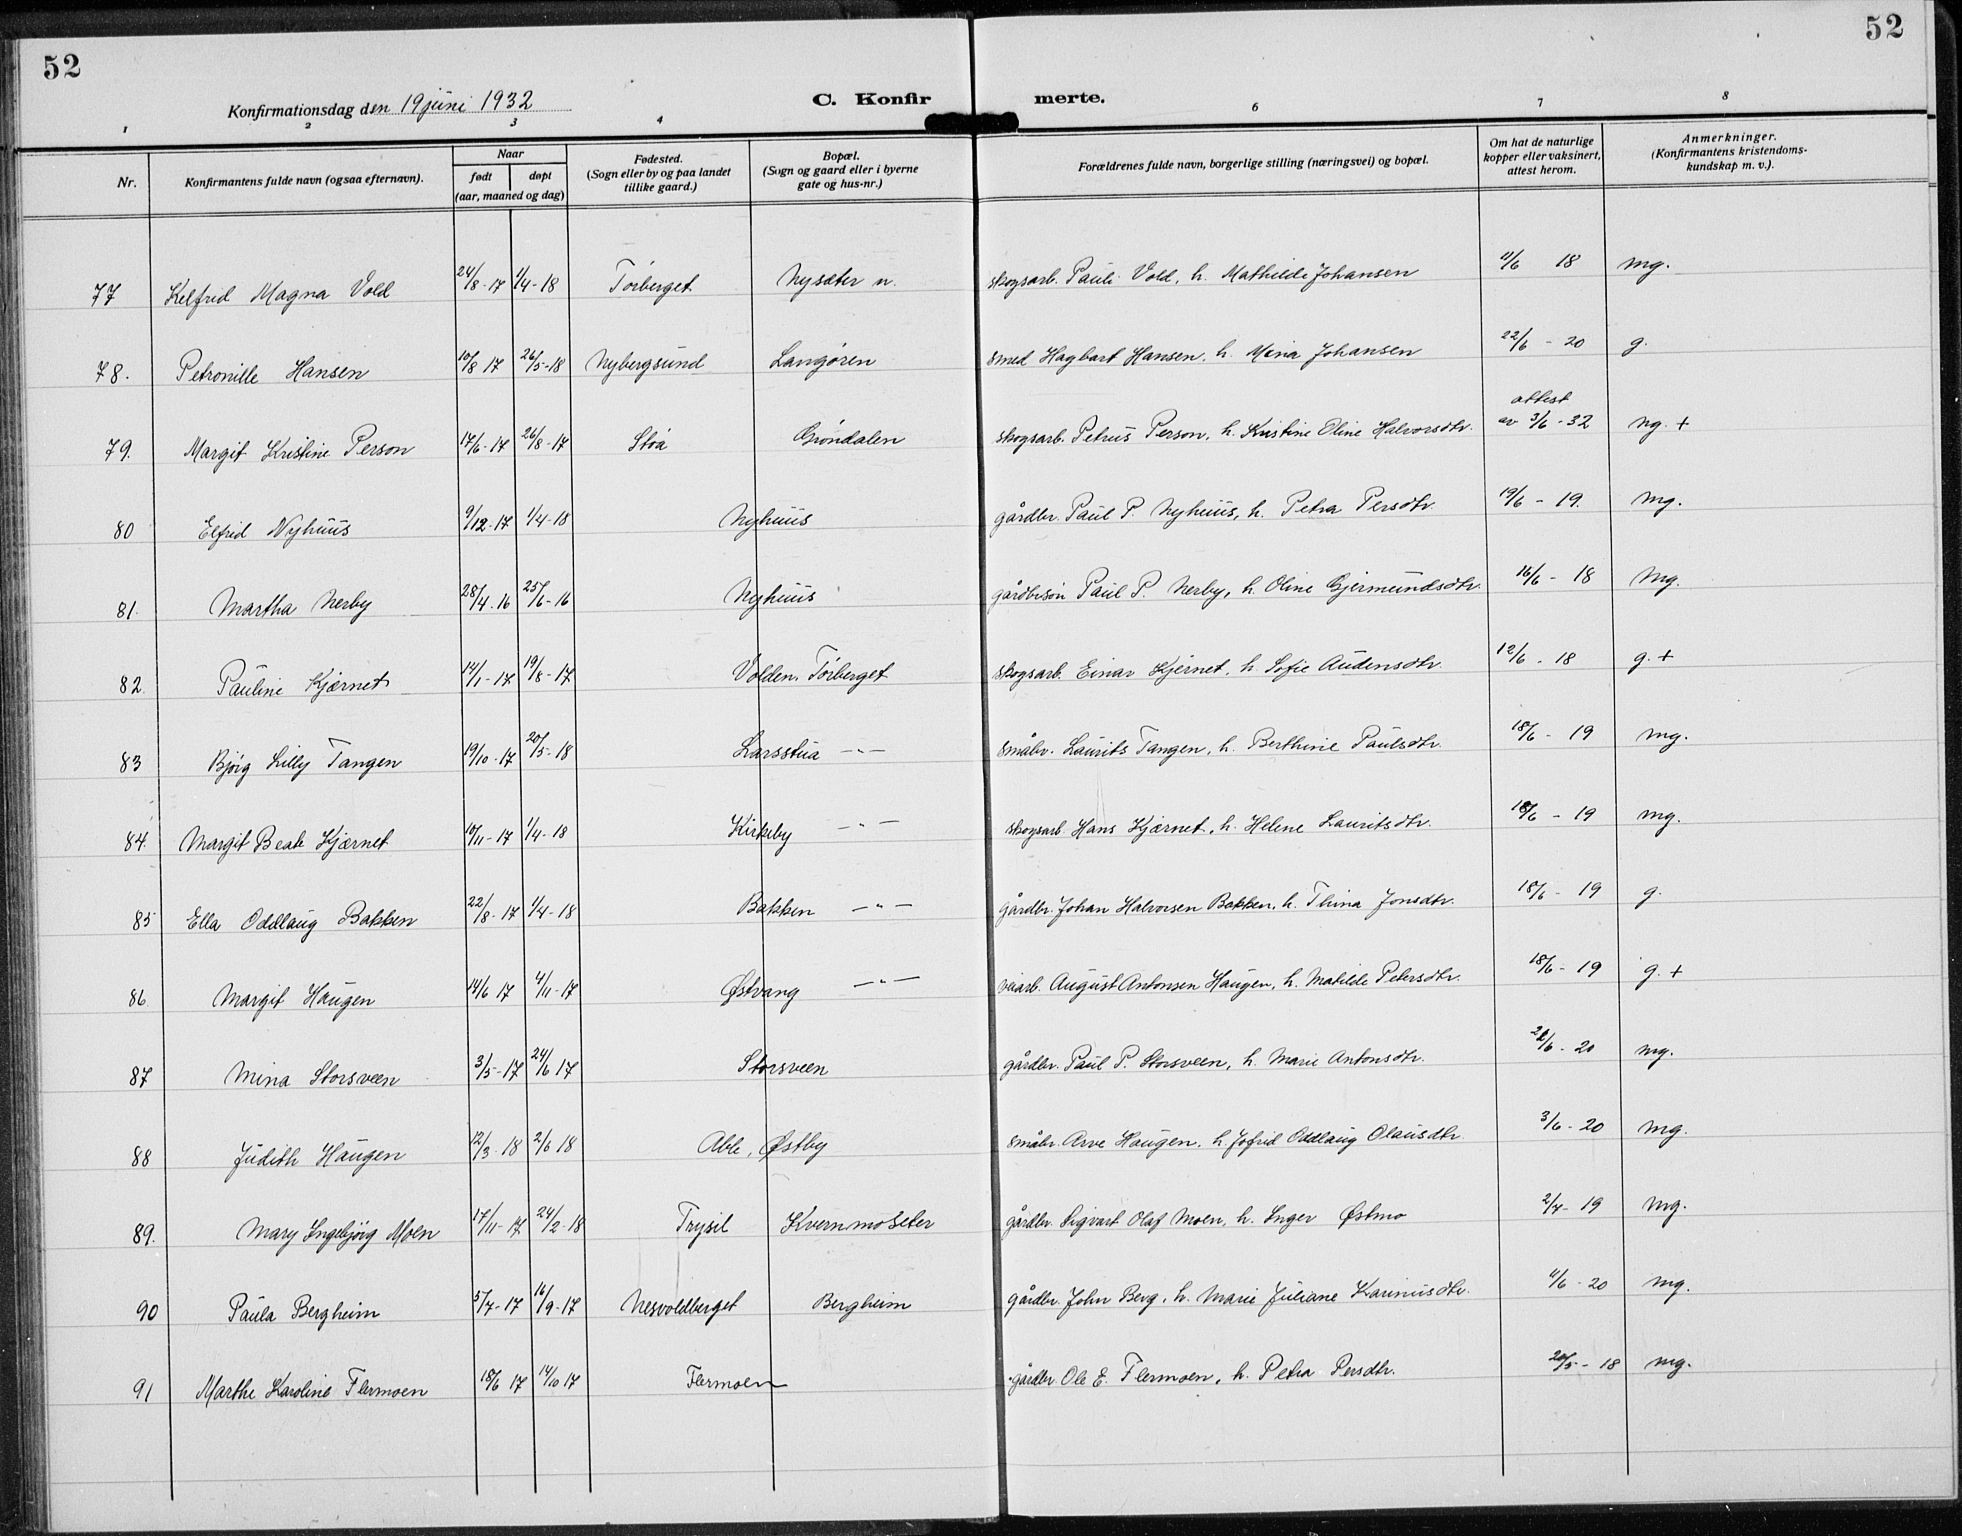 52
52
Konfirmationsdag den 19 juni 1932
C. Konfir merte.
1 2 3 4 6 7 8
Nr.
Konfirmantens fulde navn (ogsaa efternavn).
Naar
født døpt
(aar, maaned og dag)
Fødested.
(Sogn eller by og paa landet
tillike gaard.)
Bopæl.
(Sogn og gaard eller i byerne
gate og hus-nr.)
Forældrenes fulde navn, borgerlige stilling (næringsvei) og bopæl.
Om hat de naturlige
kopper eller vaksinert,
attest herom.
Anmerkninger.
(Konfirmantens kristendoms-
kundskap m. v.).
77 Kelfrid Magna Vold 24/8-17 1/4-18 Törberget Nysæter n. skogsarb. Pauli Vold, h. Mathilde Johansen 11/6 18 mg.
78. Petronille Hansen 10/8 17 26/5-18 Nybergsund Langören smed Hagbart Hansen, h. Mina Johansen 22/6 - 20 g.
79. Margit Kristine Person 17/6-17 26/8-17 Stöa Gröndalen skogsarb. Petrus Person, h. Kristine Oline Halvorsdtr. attest av 3/6-32 ng. +
80 Elfrid Nyhuus 9/12-17 1/4-18 Nyhuus gårdbr. Paul P. Nyhuus, h. Petra Persdtr. 19/6 - 19. mg.
81. Martha Nerby 28/4.16 25/6-16 Nyhuus gårdbrsön Paul P. Nerby, h. Oline Gjermundsdtr. 16/6 - 18 mg.
82 Pauline Kjærnet 14/1-17 19/8-17 Volden, Törberget skogsarb. Einar Kjernet, h. Sofie Audensdtr. 12/6 - 18 g. +
83 Björg Lilly Tangen 19/10-17 20/5-18 Larsstua -"- småbr. Laurits Tangen, h. Berthine Paulsdtr. 18/6 - 19 mg.
84. Margit Beate Kjærnet 10/11-17 1/4-18 Kirkeby -"- skogsarb. Hans Kjærnet, h. Helene Lauritsdtr. 18/6 - 19 mg.
85 Ella Oddlaug Bakken 22/8-17 1/4-18 Bakken -"- gårdbr. Johan Halvorsen Bakken, h. Thina Jonsdtr. 18/6 - 19 g.
86. Margit Haugen 14/6 17 4/11-17 Østvang -"- veiarb. August Antonsen Haugen, h. Matilde Petersdtr. 18/6 - 19 g. +
87 Mina Storsveen 3/5-17 24/6 17 Storsveen gårdbr. Paul P. Storsveen, h. Marie Antonsdtr. /6 - 20 mg.
88 Judith Haugen 12/3-18 2/6 18 Able, Østby småbr. Arve Haugen, h. Jofrid Oddlaug Olausdtr 3/6-20 mg.
89. Mary Ingebjörg Moen 17/11-17 24/2-18 Trysil Kvernmoseter gårdbr. Sigvart Olaf Moen, h. Inger Østmo 2/7- 19 mg.
90 Paula Bergheim 5/7-17 16/9-17 Nesvoldberget Bergheim gårdbr. John Berg, h. Marie Juliane Karinusdtr. 4/6-20 mg.
91 Marthe Karoline Flermoen 18/6 17 14/10 17 Flermoen gårdbr Ole E. Flermoen, h. Petra Persdtr. 20/5-18 mg.